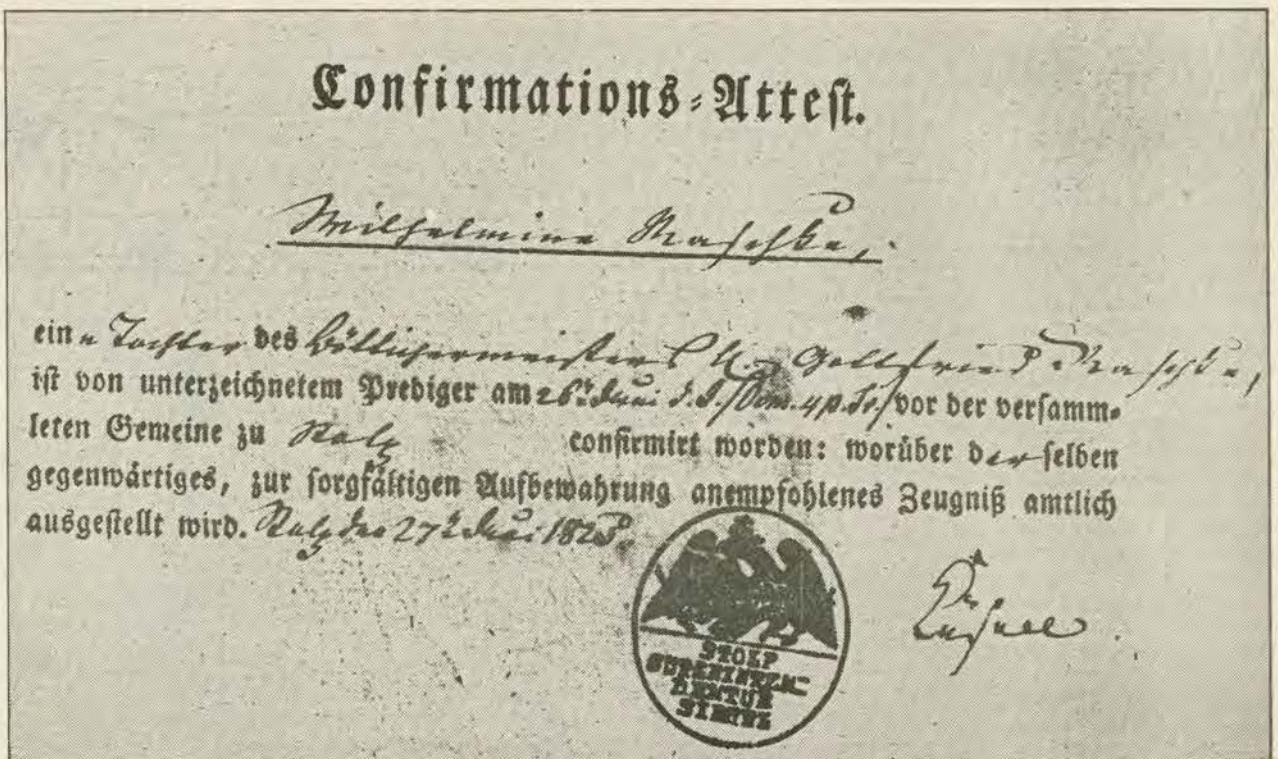 Confirmations-Attest.
Wilhelmine Maschke,
eine Tochter des Böttichermeister Gottfried Maschke,
ist von unterzeichnetem Prediger am 26t. Juni d. J. /Dom. 4 p. Tr./ vor der versamm-
leten Gemeine zu Stolp confirmirt worden: worüber derselben
gegenwärtiges, zur sorgfältigen Aufbewahrung anempfohlenes Zeugniß amtlich
ausgestellt wird. Stolp den 27t Juni 1825.
STOLP
SUPERINTEN-
DENTUR
SIEGEL